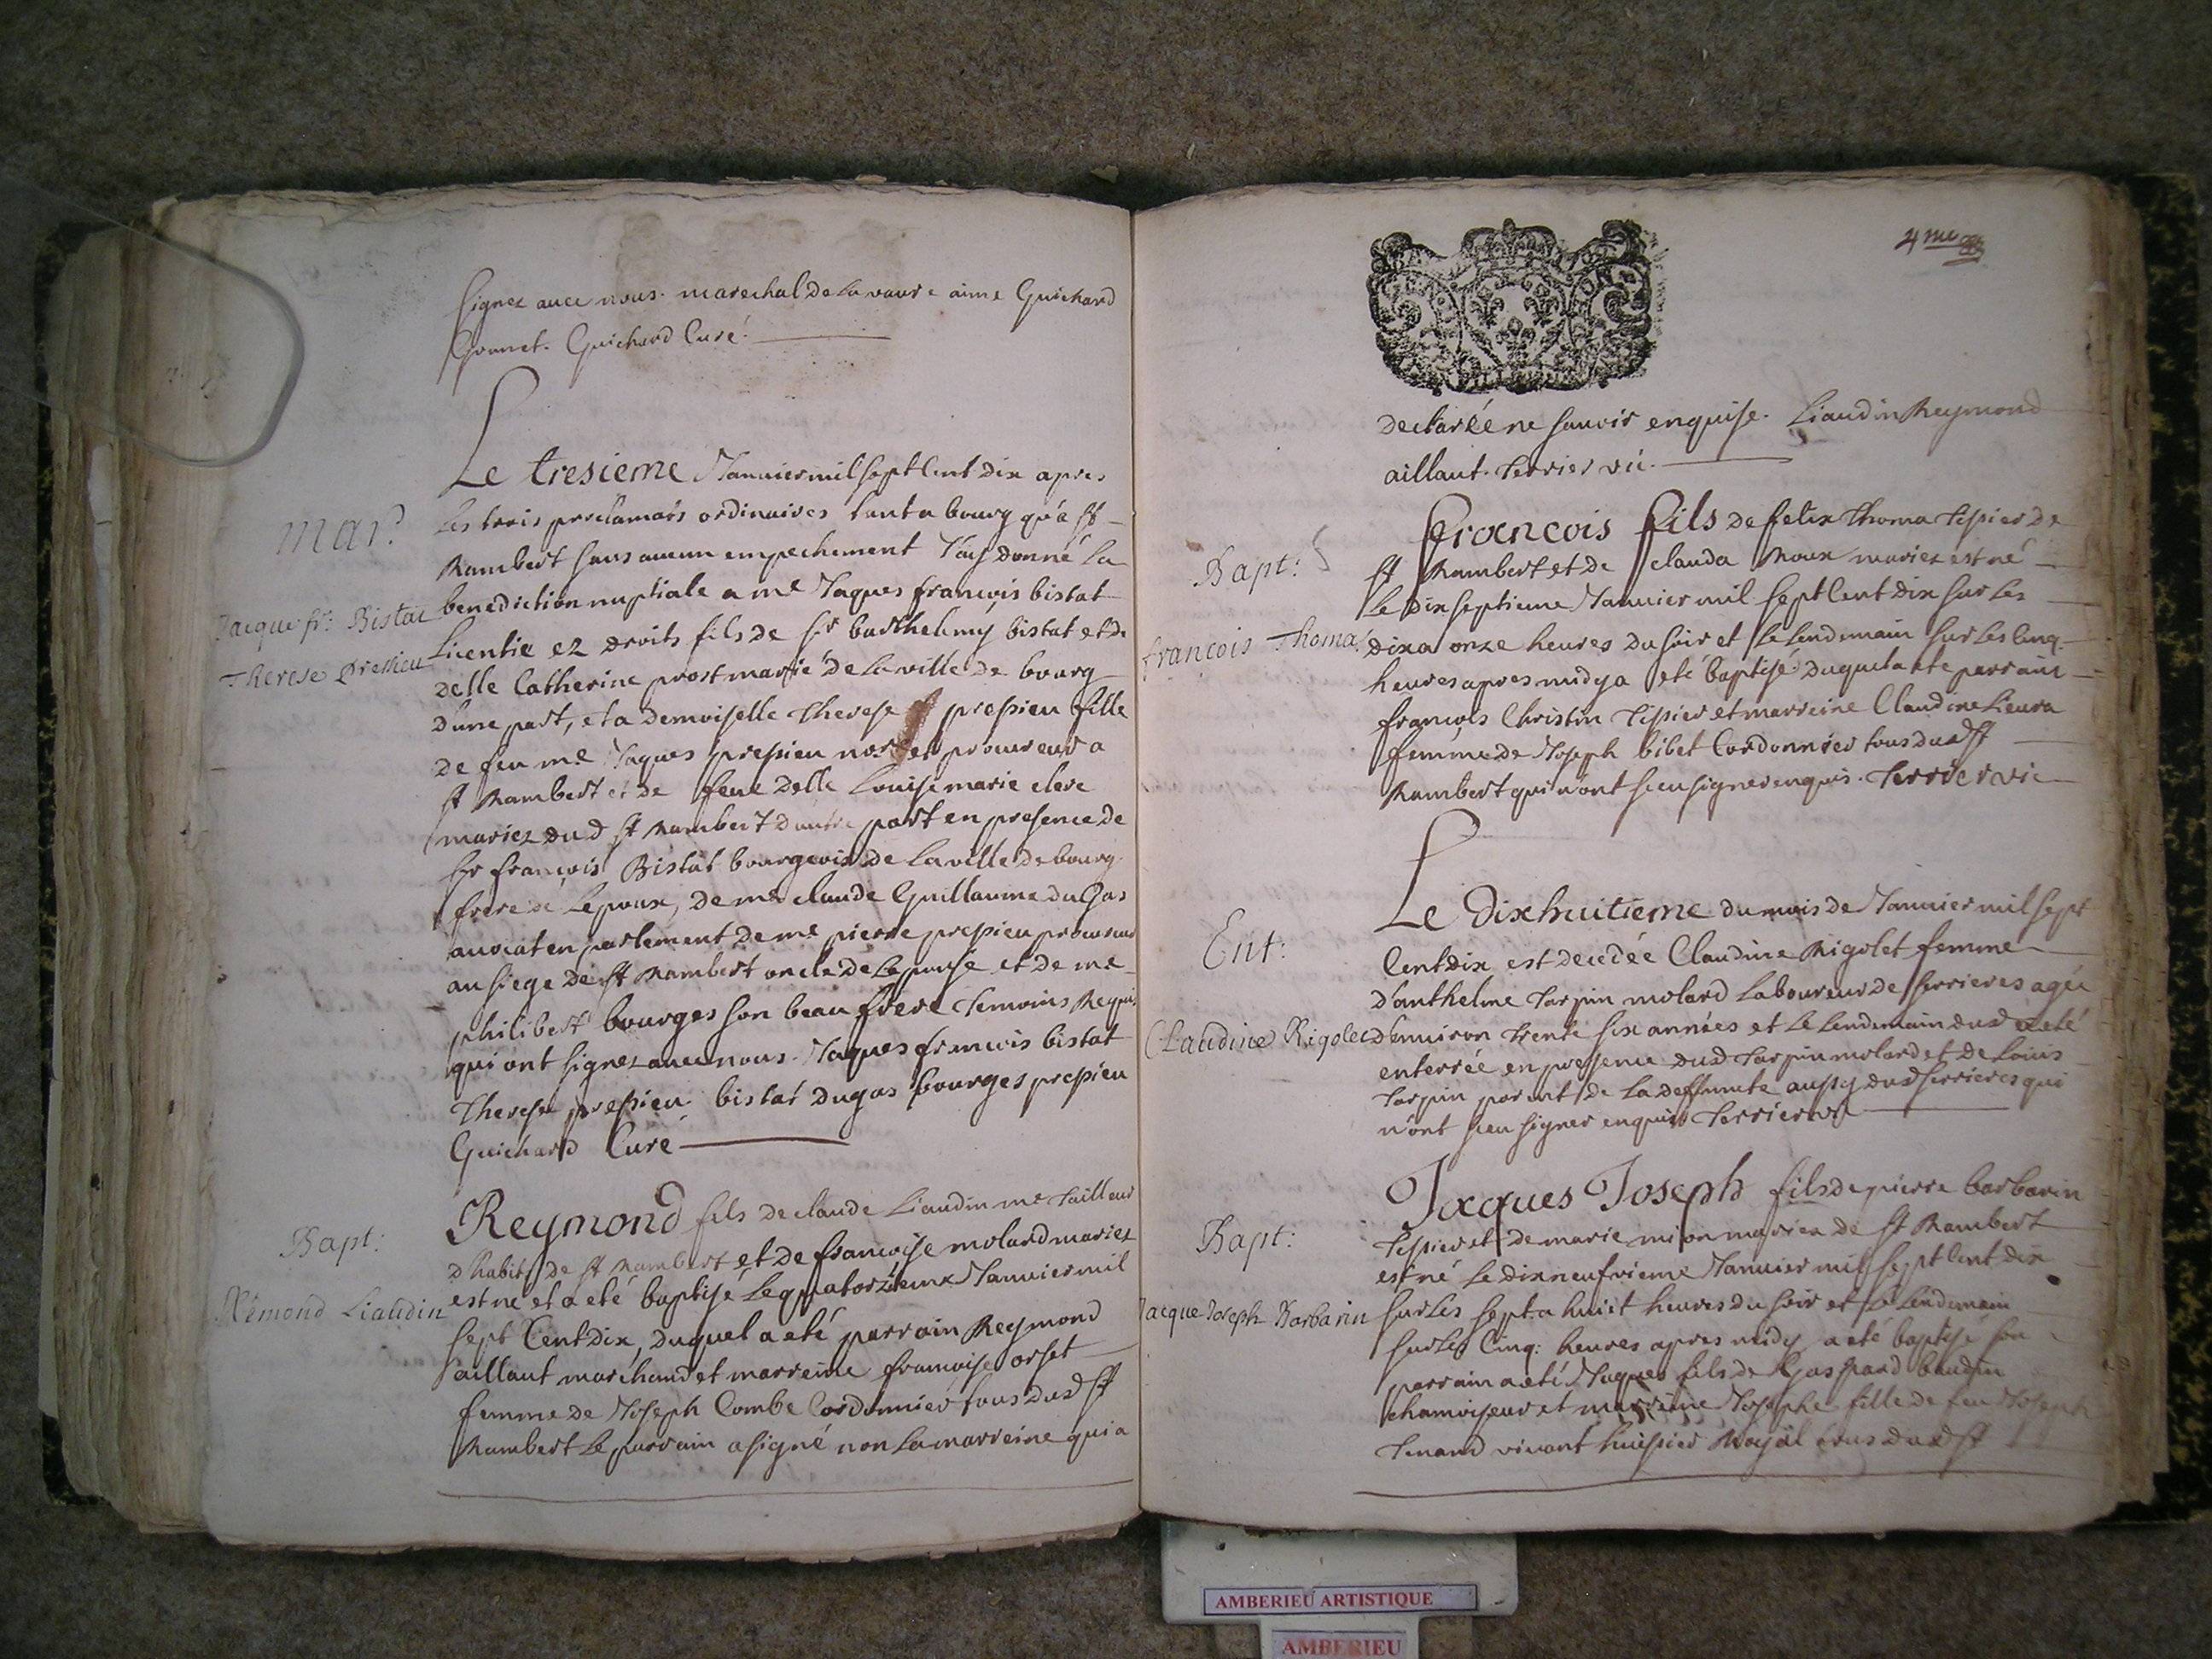 signez avec nous. marechal de la vaure aime Guichard
Gonnet. Guichard Curé.
mar?
Jacque fr: Bistac
Therese Pressieu
Le tresieme Januier mil sept Cent dix apres
les trois proclamats ordinaires tant a bourg qu'a st
Rambert sans aucun empechement J'ay donné la
benediction nuptiale a me Jaques francois bistat
Licentie ez droits fils de sr barthelemy bistat et de
delle Catherine prost marié de la ville de bourg
d'une part, et a demoiselle Therese presieu fille
de feu me Jaques presieu nore et procureur a
st Rambert et de feue delle Louise marie clere
mariez dud st Rambert d'autre part en presence de
sr francois Bistat bourgeois de la ville de bourg
frere de Lepoux, de me claude Guillaume duGas
auocat en parlement de me pierre presieu procureur
au siege de st Rambert oncle de Lepouse et de me
philibert bourges son beau frere temoins Requis
qui ont signez auec nous. Jaques francois bistat
Therese presieu bistat dugas bourges presieu
Guichard Curé
Bapt:
Rémond Liaudin
Reymond fils de claude Liaudin me tailleur
d'habits de st Rambert et de francoise molard mariez
est né et a eté baptisé le quatorzieme Januier mil
sept Cent dix, duquel a eté parrain Reymond
aillaut marchand et marreine francoise orset
femme de Joseph Combe Cordonnier tous dud st
Rambert le parrain a signé non la marreine qui a
4me
declaréé ne sauoir enquise. Liaudin Reymond
aillaut. Terrier vic.
Bapt:
francois Thomas
Francois fils de felix Thoma tisier de
st Rambert et de clauda Roux mariez est né
le dix septieme Januier mil sept Cent dix sur les
dix a onze heures du soir et le lendemain sur les Cinq
heures apres midy a eté baptisé duquel a ete parrain
francois Christin tisier et marreine Claudine Lieura
femme de Joseph bibet Cordonnier tous dud st
Rambert qui n'ont sceu signer enquis. Terrier vic
Ent:
Claudine Rigolet
Le dixhuitieme du mois de Januier mil sept
Cent dix est decedée Claudine Rigolet femme
d'anthelme tarpin molard Laboureur de serrieres agée
d'enuiron trente six années et le lendemain dud a eté
enterrée en presence dud tarpin molard et de Louis
tarpin parent de la deffunte aussy dud serrieres qui
n'ont sceu signer enquis Terrier vi
Bapt:
Jacque Joseph Barbarin
Jacques Joseph fils de pierre barbarin
tisier et de marie mion mariez de st Rambert
est né le dix neufvieme Januier mil sept Cent dix
sur les sept a huict heures du soir et le lendemain
sur les Cinq heures apres midy a eté baptisé son
parrain a eté Jaques fils de Gaspard baudin
chamoiseur et marreine Josephe fille de feu Joseph
Tenand viuant huissier Royal tous dud st
AMBERIEU ARTISTIQUE
AMBERIEU